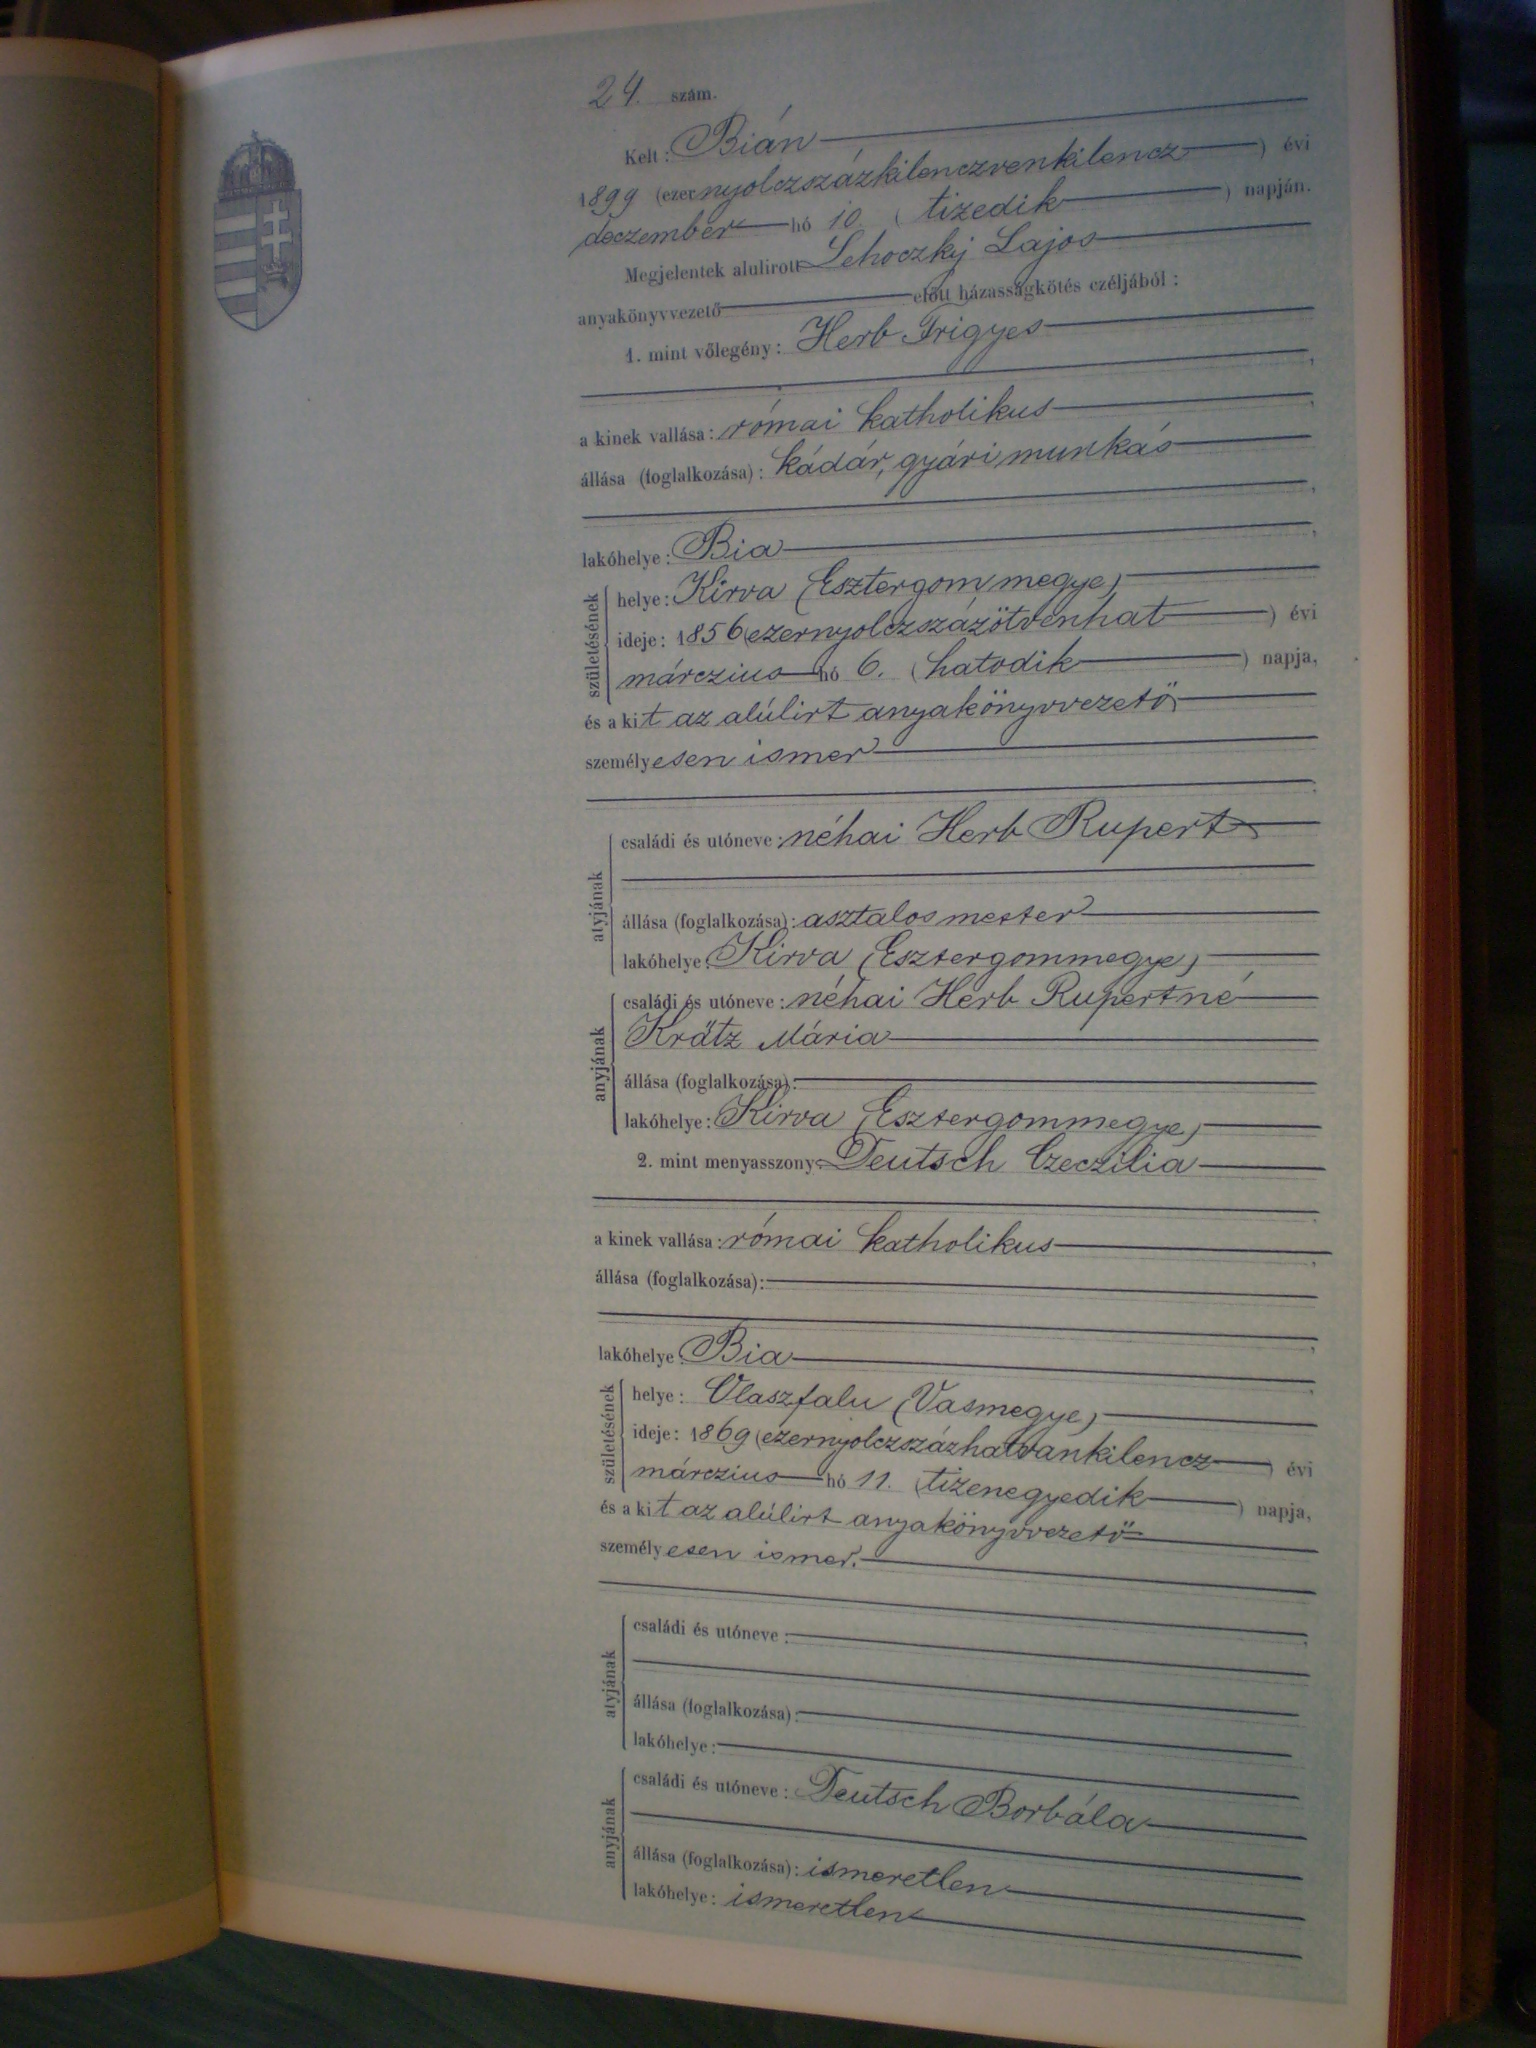 24. szám.
Kelt: Bián
1899 (ezernyolczszázkilenczvenkilencz) évi
deczember hó 10. (tizedik) napján.
Megjelentek alulirott Lehoczky Lajos
anyakönyvvezető előtt házasságkötés czéljából:
1. mint vőlegény: Herb Frigyes
,
a kinek vallása: római katholikus,
állása (foglalkozása): kádár, gyári munkás
,
lakóhelye: Bia,
születésének
helye: Kirva (Esztergom megye)
ideje: 1856 (ezernyolczszázötvenhat) évi
márczius hó 6. (hatodik) napja,
és a kit az alúlirt anyakönyvvezető
személyesen ismer
atyjának
családi és utóneve: néhai Herb Rupert
állása (foglalkozása): asztalosmester
lakóhelye: Kirva (Esztergommegye)
anyjának
családi és utóneve: néhai Herb Rupertné
Krätz Mária
állása (foglalkozása):
lakóhelye: Kirva (Esztergommegye)
2. mint menyasszony: Deutsch Czeczilia
,
a kinek vallása: római katholikus,
állása (foglalkozása):
,
lakóhelye: Bia,
születésének
helye: Olaszfalu (Vasmegye)
ideje: 1869 (ezernyolczszázhatvankilencz) évi
márczius hó 11. (tizenegyedik) napja,
és a kit az alúlirt anyakönyvvezető
személyesen ismer.
,
atyjának
családi és utóneve:
állása (foglalkozása):
lakóhelye:
anyjának
családi és utóneve: Deutsch Borbála
állása (foglalkozása): ismeretlen
lakóhelye: ismeretlen